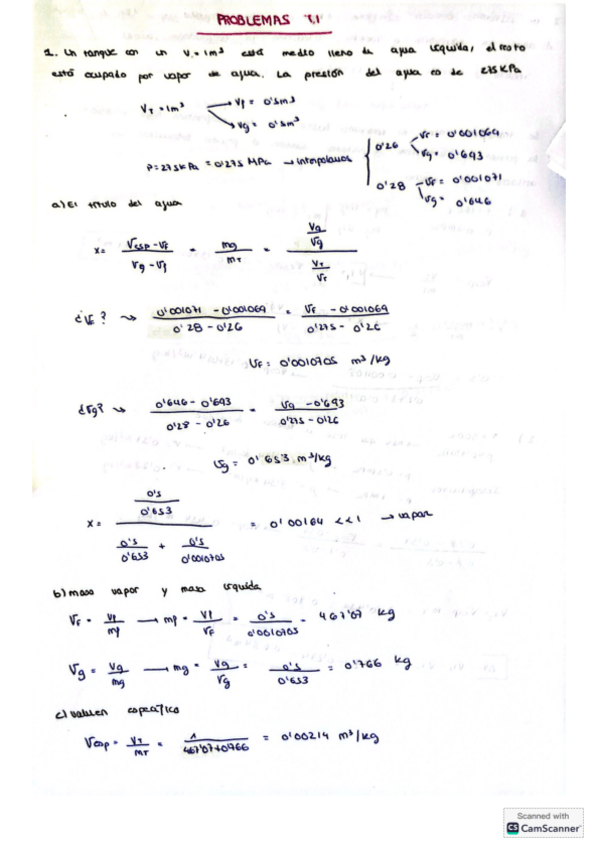 PROBLEMAS T.1
1. Un tanque con un V = 1m³ está medio lleno de agua líquida, el resto
está ocupado por vapor de agua. La presión del agua es de 275 KPa
VT = 1m³ → Vf = 0'5m³
→ Vg = 0'5m³
P = 275KPa = 0'275 MPa → interpolamos
0'26 vf = 0'001069
vg = 0'693
0'28 vf = 0'001071
vg = 0'646
a) El título del agua
x = (vesp - vf)/(vg - vf) = mg/mT = (Vg/vg)/(VT/vT)
¿vf? → (0'001071 - 0'001069)/(0'28 - 0'26) = (vf - 0'001069)/(0'275 - 0'26)
vf = 0'0010705 m³/kg
¿vg? → (0'646 - 0'693)/(0'28 - 0'26) = (vg - 0'693)/(0'275 - 0'26)
vg = 0'653 m³/kg
x = (0'5/0'653)/(0'5/0'653 + 0'5/0'0010705) = 0'00164 <<1 → vapor
b) masa vapor y masa líquida
vf = Vf/mf → mf = Vf/vf = 0'5/0'0010705 = 467'07 kg
vg = Vg/mg → mg = Vg/vg = 0'5/0'653 = 0'766 kg
c) volumen específico
vesp = VT/mT = 1/(467'07+0'766) = 0'00214 m³/kg
Scanned with
CS CamScanner